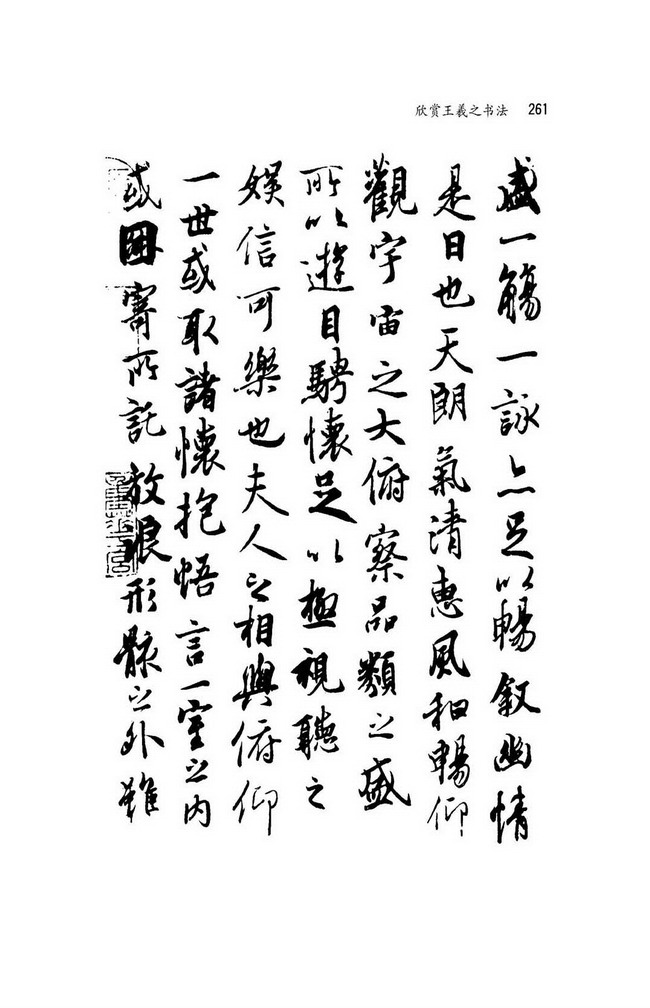 欣赏王羲之书法 261
盛一觴一詠亦足以暢叙幽情
是日也天朗氣清惠風和暢仰
觀宇宙之大俯察品類之盛
所以遊目騁懷足以極視聽之
娛信可樂也夫人之相與俯仰
一世或取諸懷抱悟言一室之内
或因寄所託放浪形骸之外雖